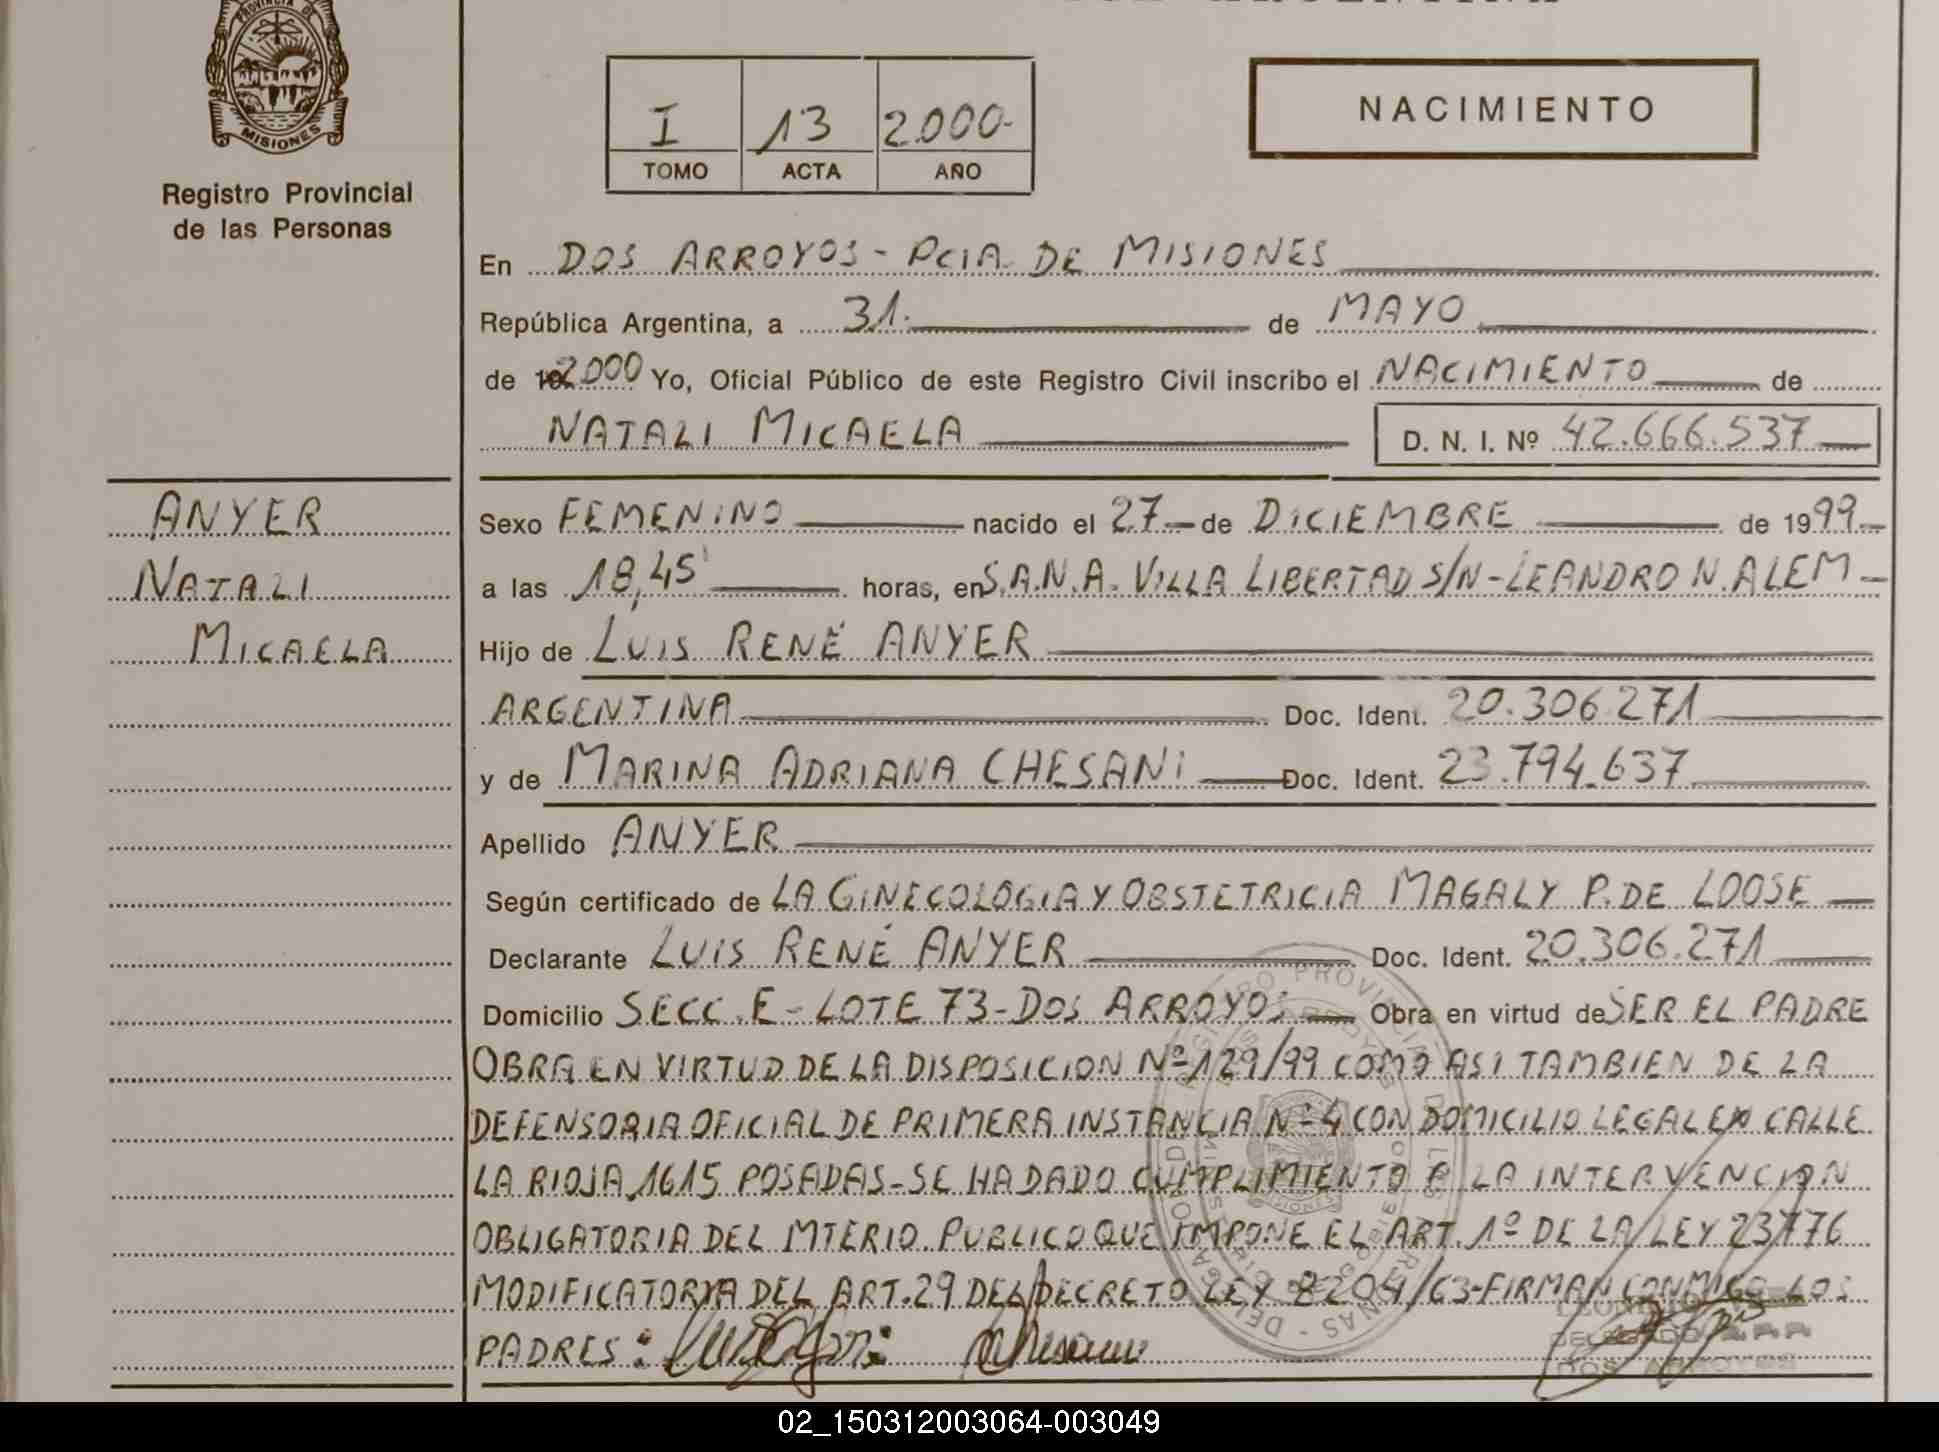 PROVINCIA DE
MISIONES
Registro Provincial
de las Personas
I 13 2.000-
TOMO ACTA AÑO
NACIMIENTO
En DOS ARROYOS - PCIA DE MISIONES
República Argentina, a 31. de MAYO
de 2000 Yo, Oficial Público de este Registro Civil inscribo el NACIMIENTO de
NATALI MICAELA D. N. I. Nº 42.666.537
ANYER
NATALI
MICAELA
Sexo FEMENINO nacido el 27 de DICIEMBRE de 1999
a las 18,45' horas, en S.A.N.A. VILLA LIBERTAD S/N - LEANDRO N. ALEM -
Hijo de LUIS RENÉ ANYER
ARGENTINA Doc. Ident. 20.306.271
y de MARINA ADRIANA CHESANI Doc. Ident. 23.794.637
Apellido ANYER
Según certificado de LA GINECOLOGIA Y OBSTETRICIA MAGALY P. DE LOOSE
Declarante LUIS RENÉ ANYER Doc. Ident. 20.306.271
Domicilio SECC. E - LOTE 73 - DOS ARROYOS Obra en virtud de SER EL PADRE
OBRA EN VIRTUD DE LA DISPOSICION Nº 129/99 COMO ASI TAMBIEN DE LA
DEFENSORIA OFICIAL DE PRIMERA INSTANCIA Nº 4 CON DOMICILIO LEGAL EN CALLE
LA RIOJA 1615 POSADAS - SE HA DADO CUMPLIMIENTO A LA INTERVENCION
OBLIGATORIA DEL MTERIO PUBLICO QUE IMPONE EL ART. 1º DE LA LEY 23776
MODIFICATORIA DEL ART. 29 DEL DECRETO LEY 8204/63 - FIRMAN CONMIGO LOS
PADRES:
DELEGADO
DOS ARROYOS
02_150312003064-003049